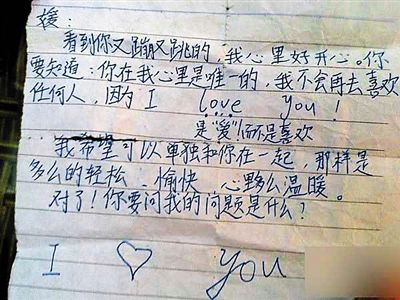 媛：
看到你又蹦又跳的，我心里好开心。你
要知道：你在我心里是唯一的，我不会再去喜欢
任何人，因为 I love you！
是“爱”而不是喜欢
我希望可以单独和你在一起，那样是
多么的轻松、愉快、心里多么温暖。
对了！你要问我的问题是什么？
I ♡ you